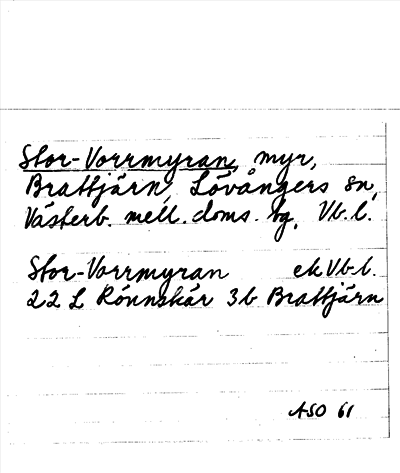 Stor-Vorrmyran, myr,
Brattjärn, Lövångers sn,
Västerb. mell. doms. tg, Vb. l.
Stor-Vorrmyran ek Vb. l.
22 L Rönnskär 3b Brattjärn
ASO 61